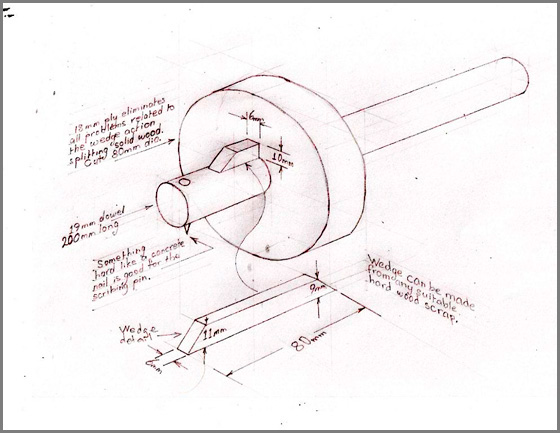 18mm ply eliminates
all problems related to
the wedge action
splitting solid wood.
Cut 80mm dia.
6mm
10mm
19mm dowel
200mm long
Something
hard like a concrete
nail is good for the
scribing pin.
Wedge can be made
from any suitable
hard wood scrap.
9mm
Wedge
detail
11mm
6mm
80mm